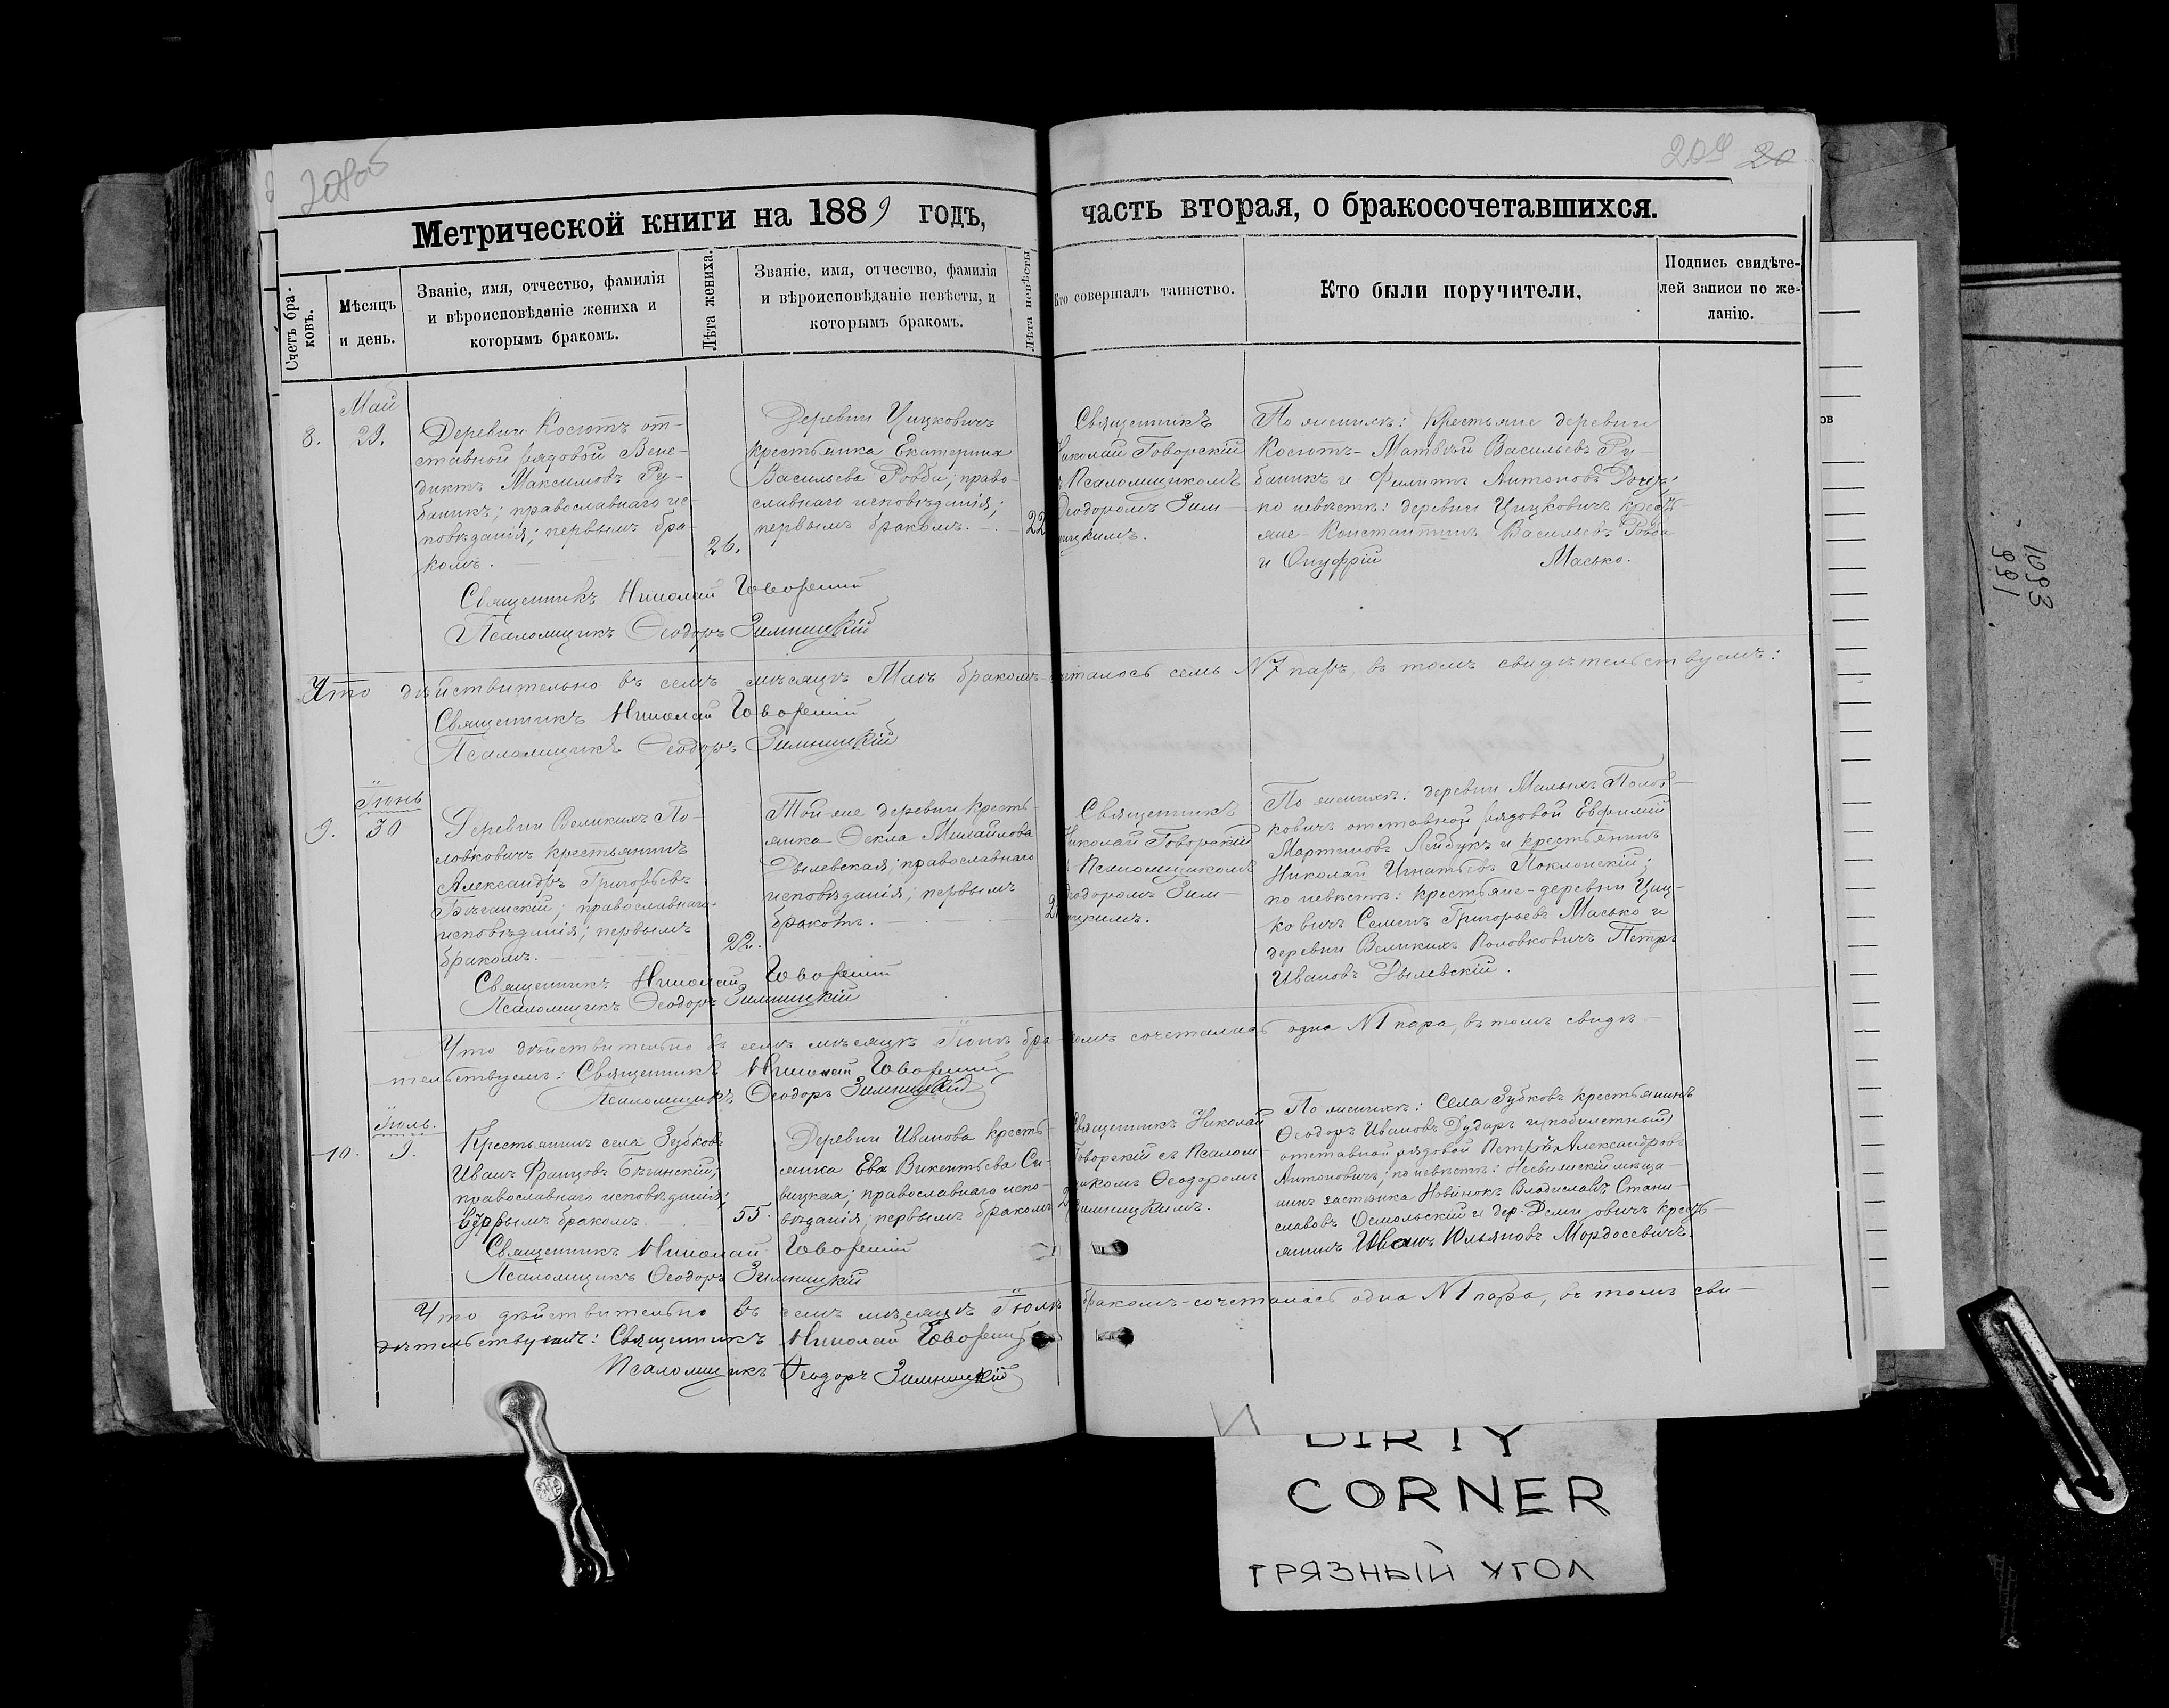 208об
209 20
Метрической книги на 1889 годъ,
часть вторая, о бракосочетавшихся.
Счетъ бра-
ковъ.
Мѣсяцъ
и день.
Званіе, имя, отчество, фамилія
и вѣроисповѣданіе жениха и
которымъ бракомъ.
Лѣта жениха.
Званіе, имя, отчество, фамилія
и вѣроисповѣданіе невѣсты, и
которымъ бракомъ.
Лѣта невѣсты
Кто совершалъ таинство.
Кто были поручители,
Подпись свидѣте-
лей записи по же-
ланію.
Май
8. 29.
Деревни Косютъ от-
ставной рядовой Вене-
диктъ Максимовъ Ру-
баникъ; православнаго ис-
повѣданія; первымъ бра-
комъ.
26.
Деревни Цицковичъ
крестьянка Екатерина
Васильева Робби; право-
славнаго исповѣданія;
первымъ бракомъ.
22
Священникъ
Николай Говорскій
Псаломщикомъ
Ѳеодоромъ Зим-
ницкимъ.
По женихѣ: крестьяне деревни
Косютъ - Матвѣй Васильевъ Ру-
баникъ и Филиппъ Антоновъ
по невѣстѣ: деревни Цицковичъ кресть-
яне - Константинъ Васильевъ Робби
и Онуфрій Масько.
Священникъ Николай Говорскій
Псаломщикъ Ѳеодоръ Зимницкій
Что дѣйствительно въ семъ мѣсяцѣ Маѣ бракомъ сочеталось семь N 7 паръ, въ томъ свидѣтельствуемъ:
Священникъ Николай Говорскій
Псаломщикъ Ѳеодоръ Зимницкій
Іюнь
9. 30
Деревни Великихъ По-
ловковичъ крестьянинъ
Александръ Григорьевъ
Бѣганскій; православнаго
исповѣданія; первымъ
бракомъ.
22.
Той-же деревни кресть-
янка Ѳекла Михайлова
Дылевская; православнаго
исповѣданія; первымъ
бракомъ.
Священникъ
Николай Говорскій
Псаломщикомъ
Ѳеодоромъ Зим-
ницкимъ.
По женихѣ: деревни Малыхъ Полов-
ковичъ отставной рядовой Евфимій
Мартиновъ Лейбукъ и крестьянинъ
Николай Игнатьевъ Поклонскій;
по невѣстѣ: крестьяне - деревни Циц-
ковичъ Семенъ Григорьевъ Масько и
деревни Великихъ Половковичъ Петръ
Ивановъ Дылевскій.
Священникъ Николай Говорскій
Псаломщикъ Ѳеодоръ Зимницкій
Что дѣйствительно въ семъ мѣсяцѣ Іюнѣ бракомъ сочеталась одна N 1 пара, въ томъ свидѣ-
тельствуемъ: Священникъ Николай Говорскій
Псаломщикъ Ѳеодоръ Зимницкій
Іюль.
10. 9.
Крестьянинъ села Зубковъ
Иванъ Францовъ Бѣганскій;
православнаго исповѣданія;
вторымъ бракомъ.
55.
Деревни Иванова кресть-
янка Ева Викентьева Си-
вицкая; православнаго испо-
вѣданія; первымъ бракомъ
Священникъ Николай
Говорскій съ Псалом-
щикомъ Ѳеодоромъ
Зимницкимъ.
По женихѣ: села Зубковъ крестьянинъ
Ѳеодоръ Ивановъ Дударъ и (побилетный)
отставной рядовой Петръ Александровъ
Антоновичъ; по невѣстѣ: Несвижскій мѣща-
нинъ застѣнка Новинокъ Владиславъ Стани-
славовъ Осмольскій и дер. крест-
янинъ Иванъ Юльяновъ Мордосевичъ.
Священникъ Николай Говорскій
Псаломщикъ Ѳеодоръ Зимницкій
Что дѣйствительно въ семъ мѣсяцѣ Іюлѣ бракомъ-сочеталась одна N 1 пара, въ томъ сви-
дѣтельствуемъ: Священникъ Николай Говорскій
Псаломщикъ Ѳеодоръ Зимницкій
ов
1093
991
DIRTY
CORNER
ГРЯЗНЫЙ УГОЛ